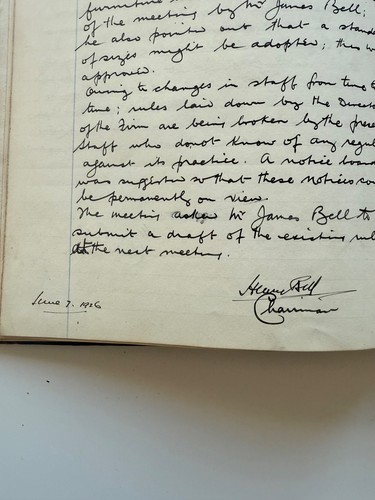 furniture
of the meeting by Mr James Bell;
he also pointed out that a stand
of sizes might be adopted; this w
approved.
Owing to changes in staff from time t
time; rules laid down by the Direct
of the Firm are being broken by the pres
Staff who do not know of any regul
against its practice. A notice boar
was suggested so that these notices co
be permanently on view.
The meeting asked Mr James Bell to
submit a draft of the existing rul
at the next meeting.
Henry Bell
Chairman
June 7. 1926